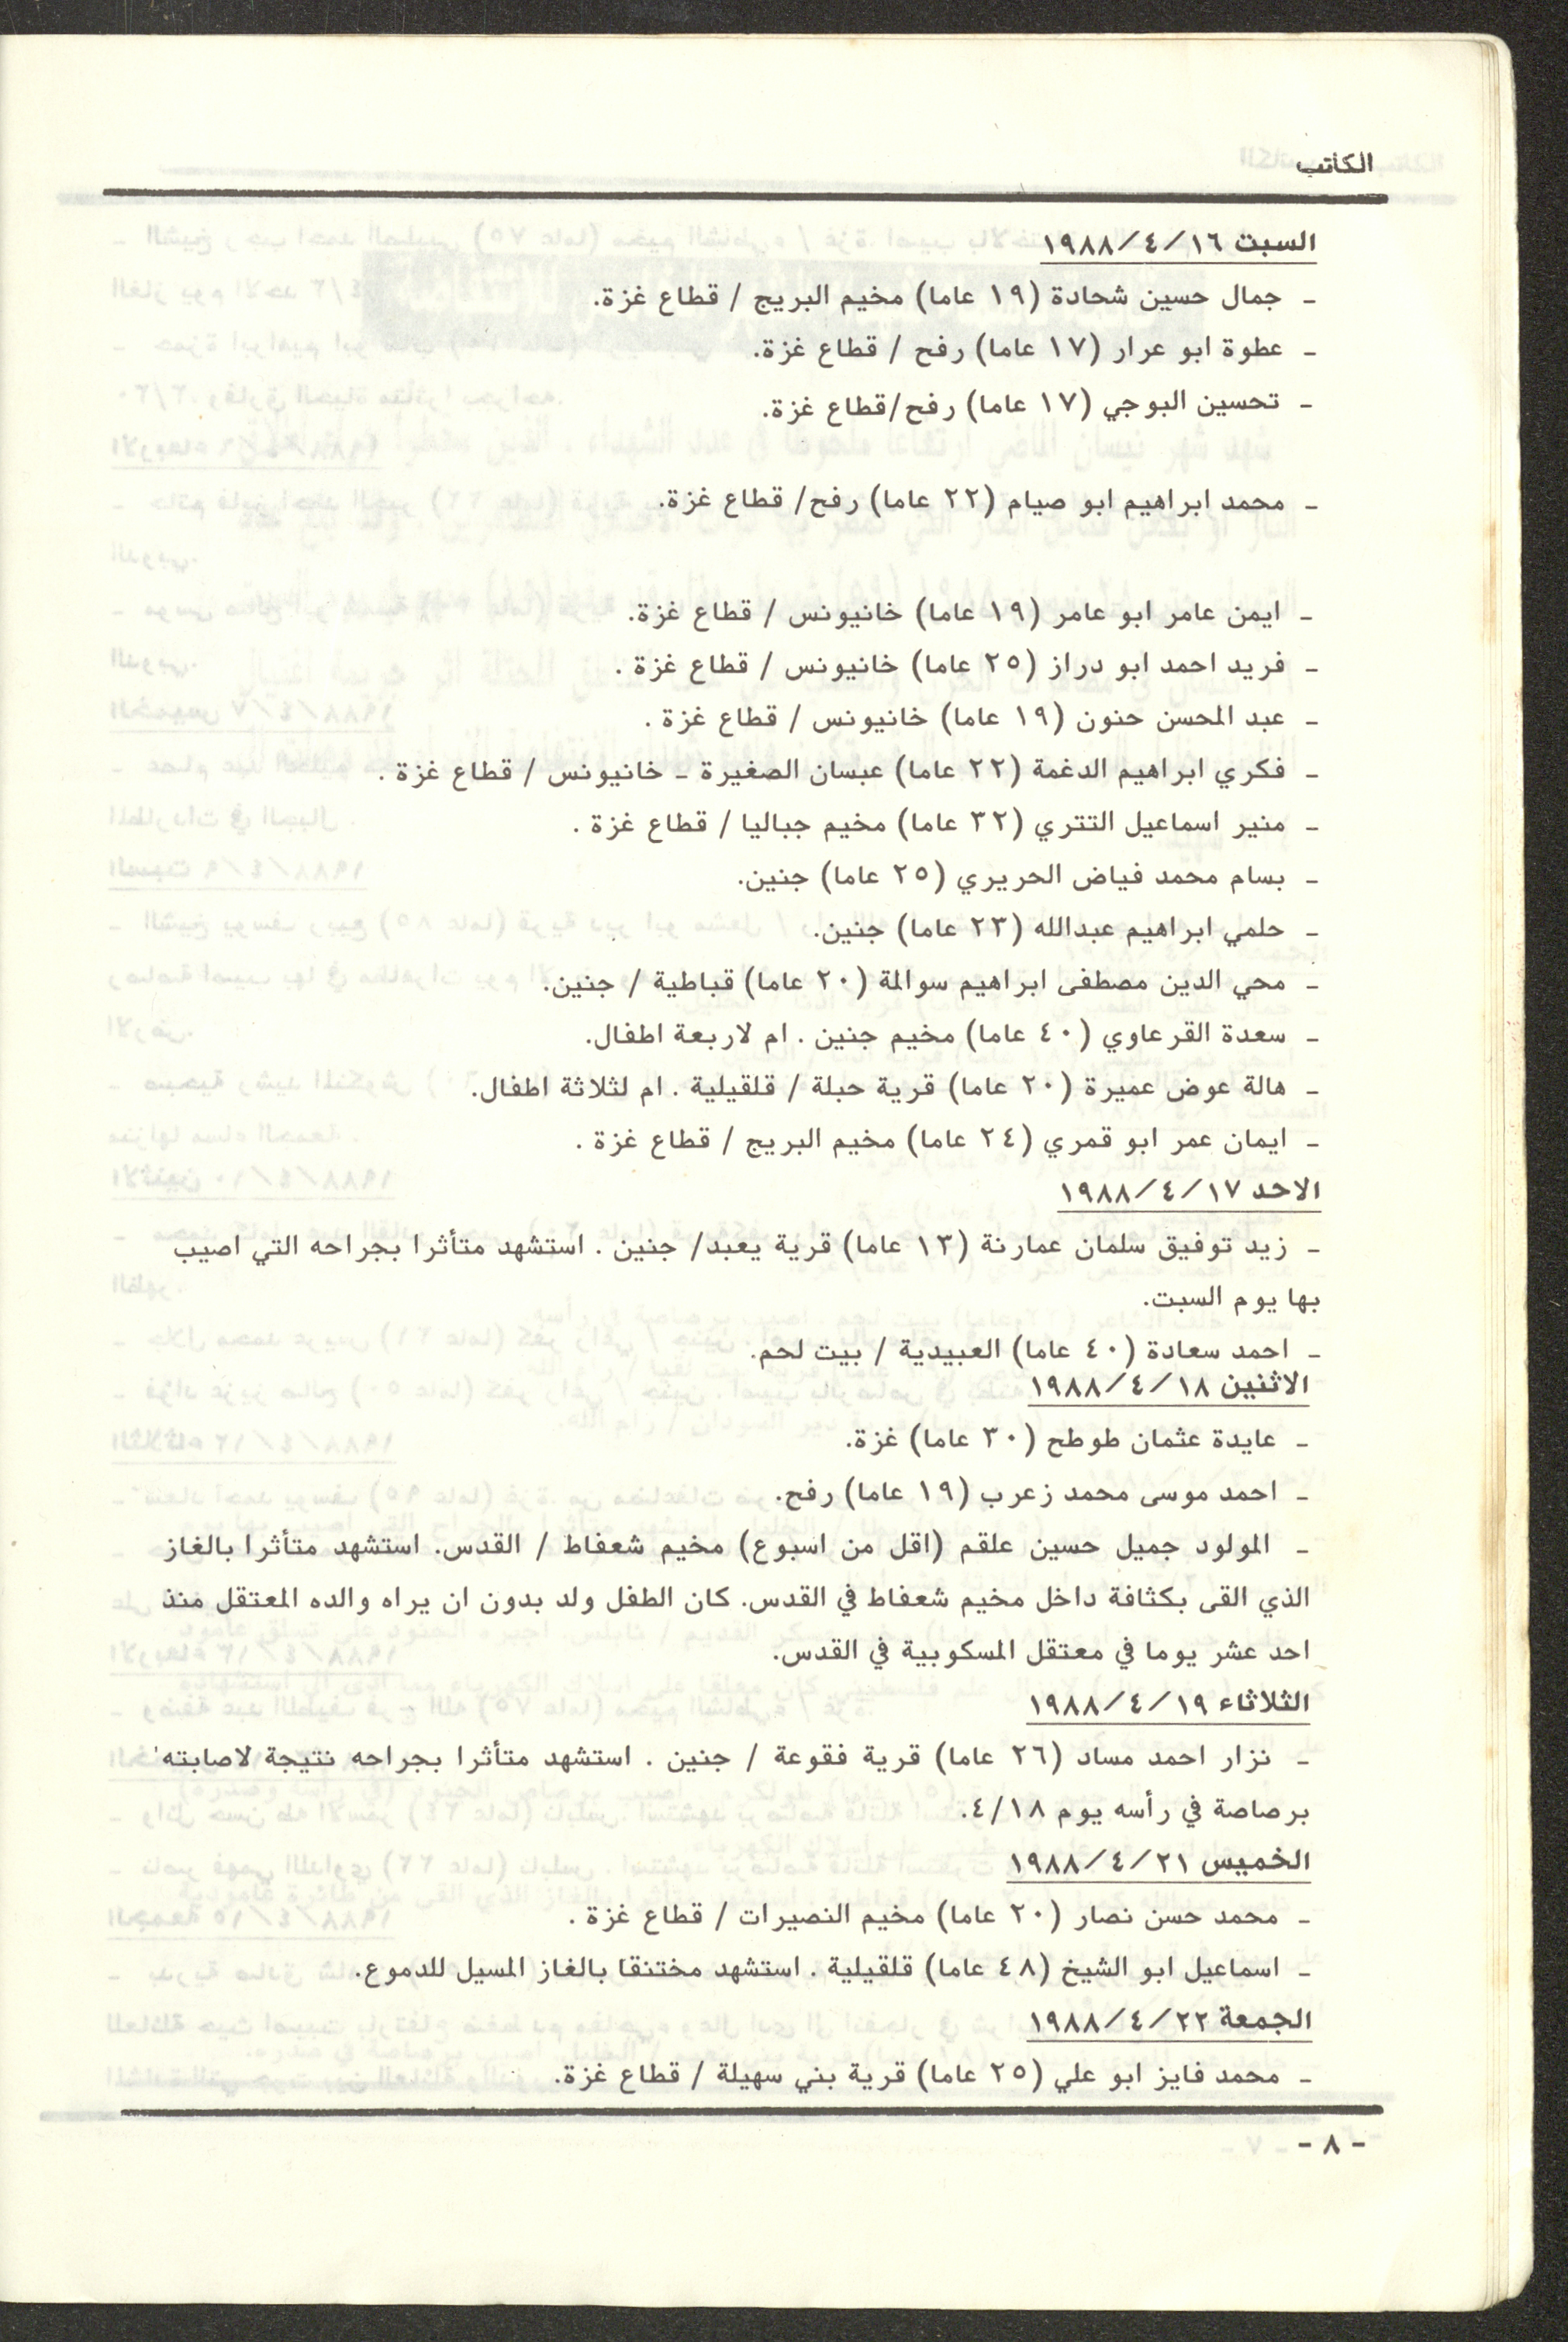 الكاتب
السبت ١٩٨٨/٤/١٦
ـ جمال حسين شحادة (١٩ عاما) مخيم البريج / قطاع غزة.
ـ عطوة ابو عرار (١٧ عاما) رفح / قطاع غزة.
ـ تحسين البوجي (١٧ عاما) رفح/قطاع غزة.
ـ محمد ابراهيم ابو صيام (٢٢ عاما) رفح/ قطاع غزة.
ـ ايمن عامر ابو عامر (١٩ عاما) خانيونس / قطاع غزة.
ـ فريد احمد ابو دراز (٢٥ عاما) خانيونس / قطاع غزة .
ـ عبد المحسن حنون (١٩ عاما) خانيونس / قطاع غزة .
ـ فكري ابراهيم الدغمة (٢٢ عاما) عبسان الصغيرة ـ خانيونس / قطاع غزة .
ـ منير اسماعيل التتري (٣٢ عاما) مخيم جباليا / قطاع غزة .
ـ بسام محمد فياض الحريري (٢٥ عاما) جنين.
ـ حلمي ابراهيم عبدالله (٢٣ عاما) جنين.
ـ محي الدين مصطفى ابراهيم سوالمة (٢٠ عاما) قباطية / جنين.
ـ سعدة القرعاوي (٤٠ عاما) مخيم جنين . ام لاربعة اطفال.
ـ هالة عوض عميرة (٢٠ عاما) قرية حبلة / قلقيلية . ام لثلاثة اطفال.
ـ ايمان عمر ابو قمري (٢٤ عاما) مخيم البريج / قطاع غزة .
الاحد ١٩٨٨/٤/١٧
ـ زيد توفيق سلمان عمارنة (١٣ عاما) قرية يعبد/ جنين . استشهد متأثرا بجراحه التي اصيب
بها يوم السبت.
ـ احمد سعادة (٤٠ عاما) العبيدية / بيت لحم.
الاثنين ١٩٨٨/٤/١٨
ـ عايدة عثمان طوطح (٣٠ عاما) غزة.
ـ احمد موسى محمد زعرب (١٩ عاما) رفح.
ـ المولود جميل حسين علقم (اقل من اسبوع) مخيم شعفاط / القدس. استشهد متأثرا بالغاز
الذي القى بكثافة داخل مخيم شعفاط في القدس. كان الطفل ولد بدون ان يراه والده المعتقل منذ
احد عشر يوما في معتقل المسكوبية في القدس.
الثلاثاء ١٩٨٨/٤/١٩
ـ نزار احمد مساد (٢٦ عاما) قرية فقوعة / جنين . استشهد متأثرا بجراحه نتيجة لاصابته
برصاصة في رأسه يوم ٤/١٨.
الخميس ١٩٨٨/٤/٢١
ـ محمد حسن نصار (٢٠ عاما) مخيم النصيرات / قطاع غزة .
ـ اسماعيل ابو الشيخ (٤٨ عاما) قلقيلية . استشهد مختنقا بالغاز المسيل للدموع.
الجمعة ١٩٨٨/٤/٢٢
ـ محمد فايز ابو علي (٢٥ عاما) قرية بني سهيلة / قطاع غزة.
- ٨ -